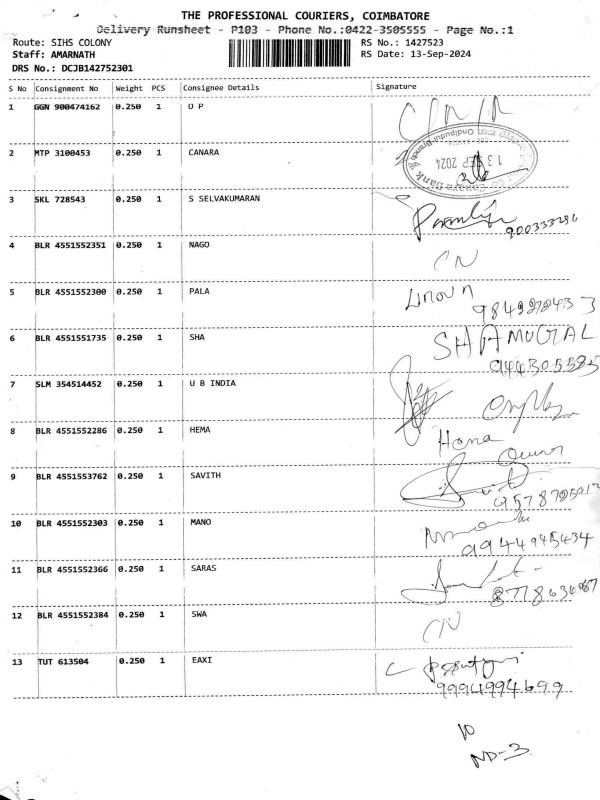 THE PROFESSIONAL COURIERS, COIMBATORE
Delivery Runsheet - P103 - Phone No.:0422-3505555 - Page No.:1
Route: SIHS COLONY
RS No.: 1427523
Staff: AMARNATH
RS Date: 13-Sep-2024
DRS No.: DCJB142752301
S No Consignment No Weight PCS Consignee Details Signature
1 GGN 900474162 0.250 1 O P
2 MTP 3100453 0.250 1 CANARA
13 SEP 2024
Canara Bank
3 SKL 728543 0.250 1 S SELVAKUMARAN
4 BLR 4551552351 0.250 1 NAGO
CN
5 BLR 4551552300 0.250 1 PALA
6 BLR 4551551735 0.250 1 SHA
7 SLM 354514452 0.250 1 U B INDIA
8 BLR 4551552286 0.250 1 HEMA
Hema
9 BLR 4551553762 0.250 1 SAVITH
10 BLR 4551552303 0.250 1 MANO
9944945434
11 BLR 4551552366 0.250 1 SARAS
12 BLR 4551552384 0.250 1 SWA
CN
13 TUT 613504 0.250 1 EAXI
9994994699
10
ND-3